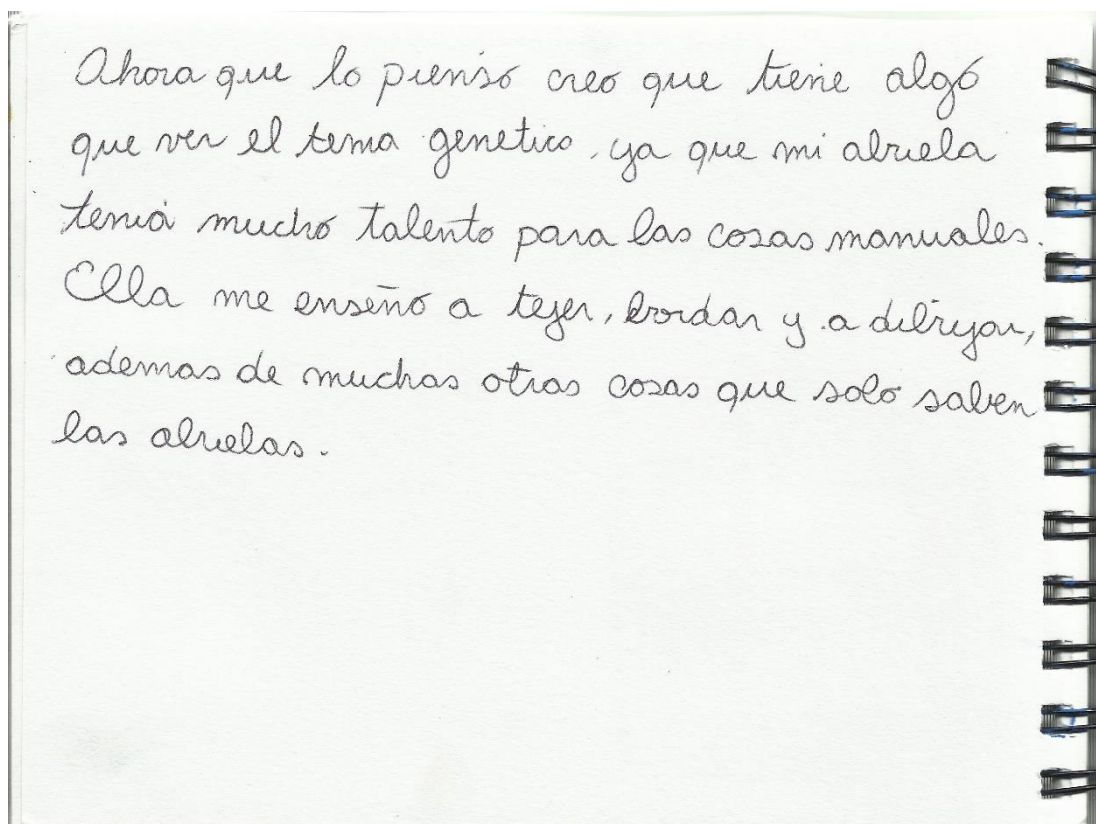 Ahora que lo pienso creo que tiene algo
que ver el tema genetico, ya que mi abuela
tenia mucho talento para las cosas manuales.
Ella me enseño a tejer, bordar y a dibujar,
ademas de muchas otras cosas que solo saben
las abuelas.